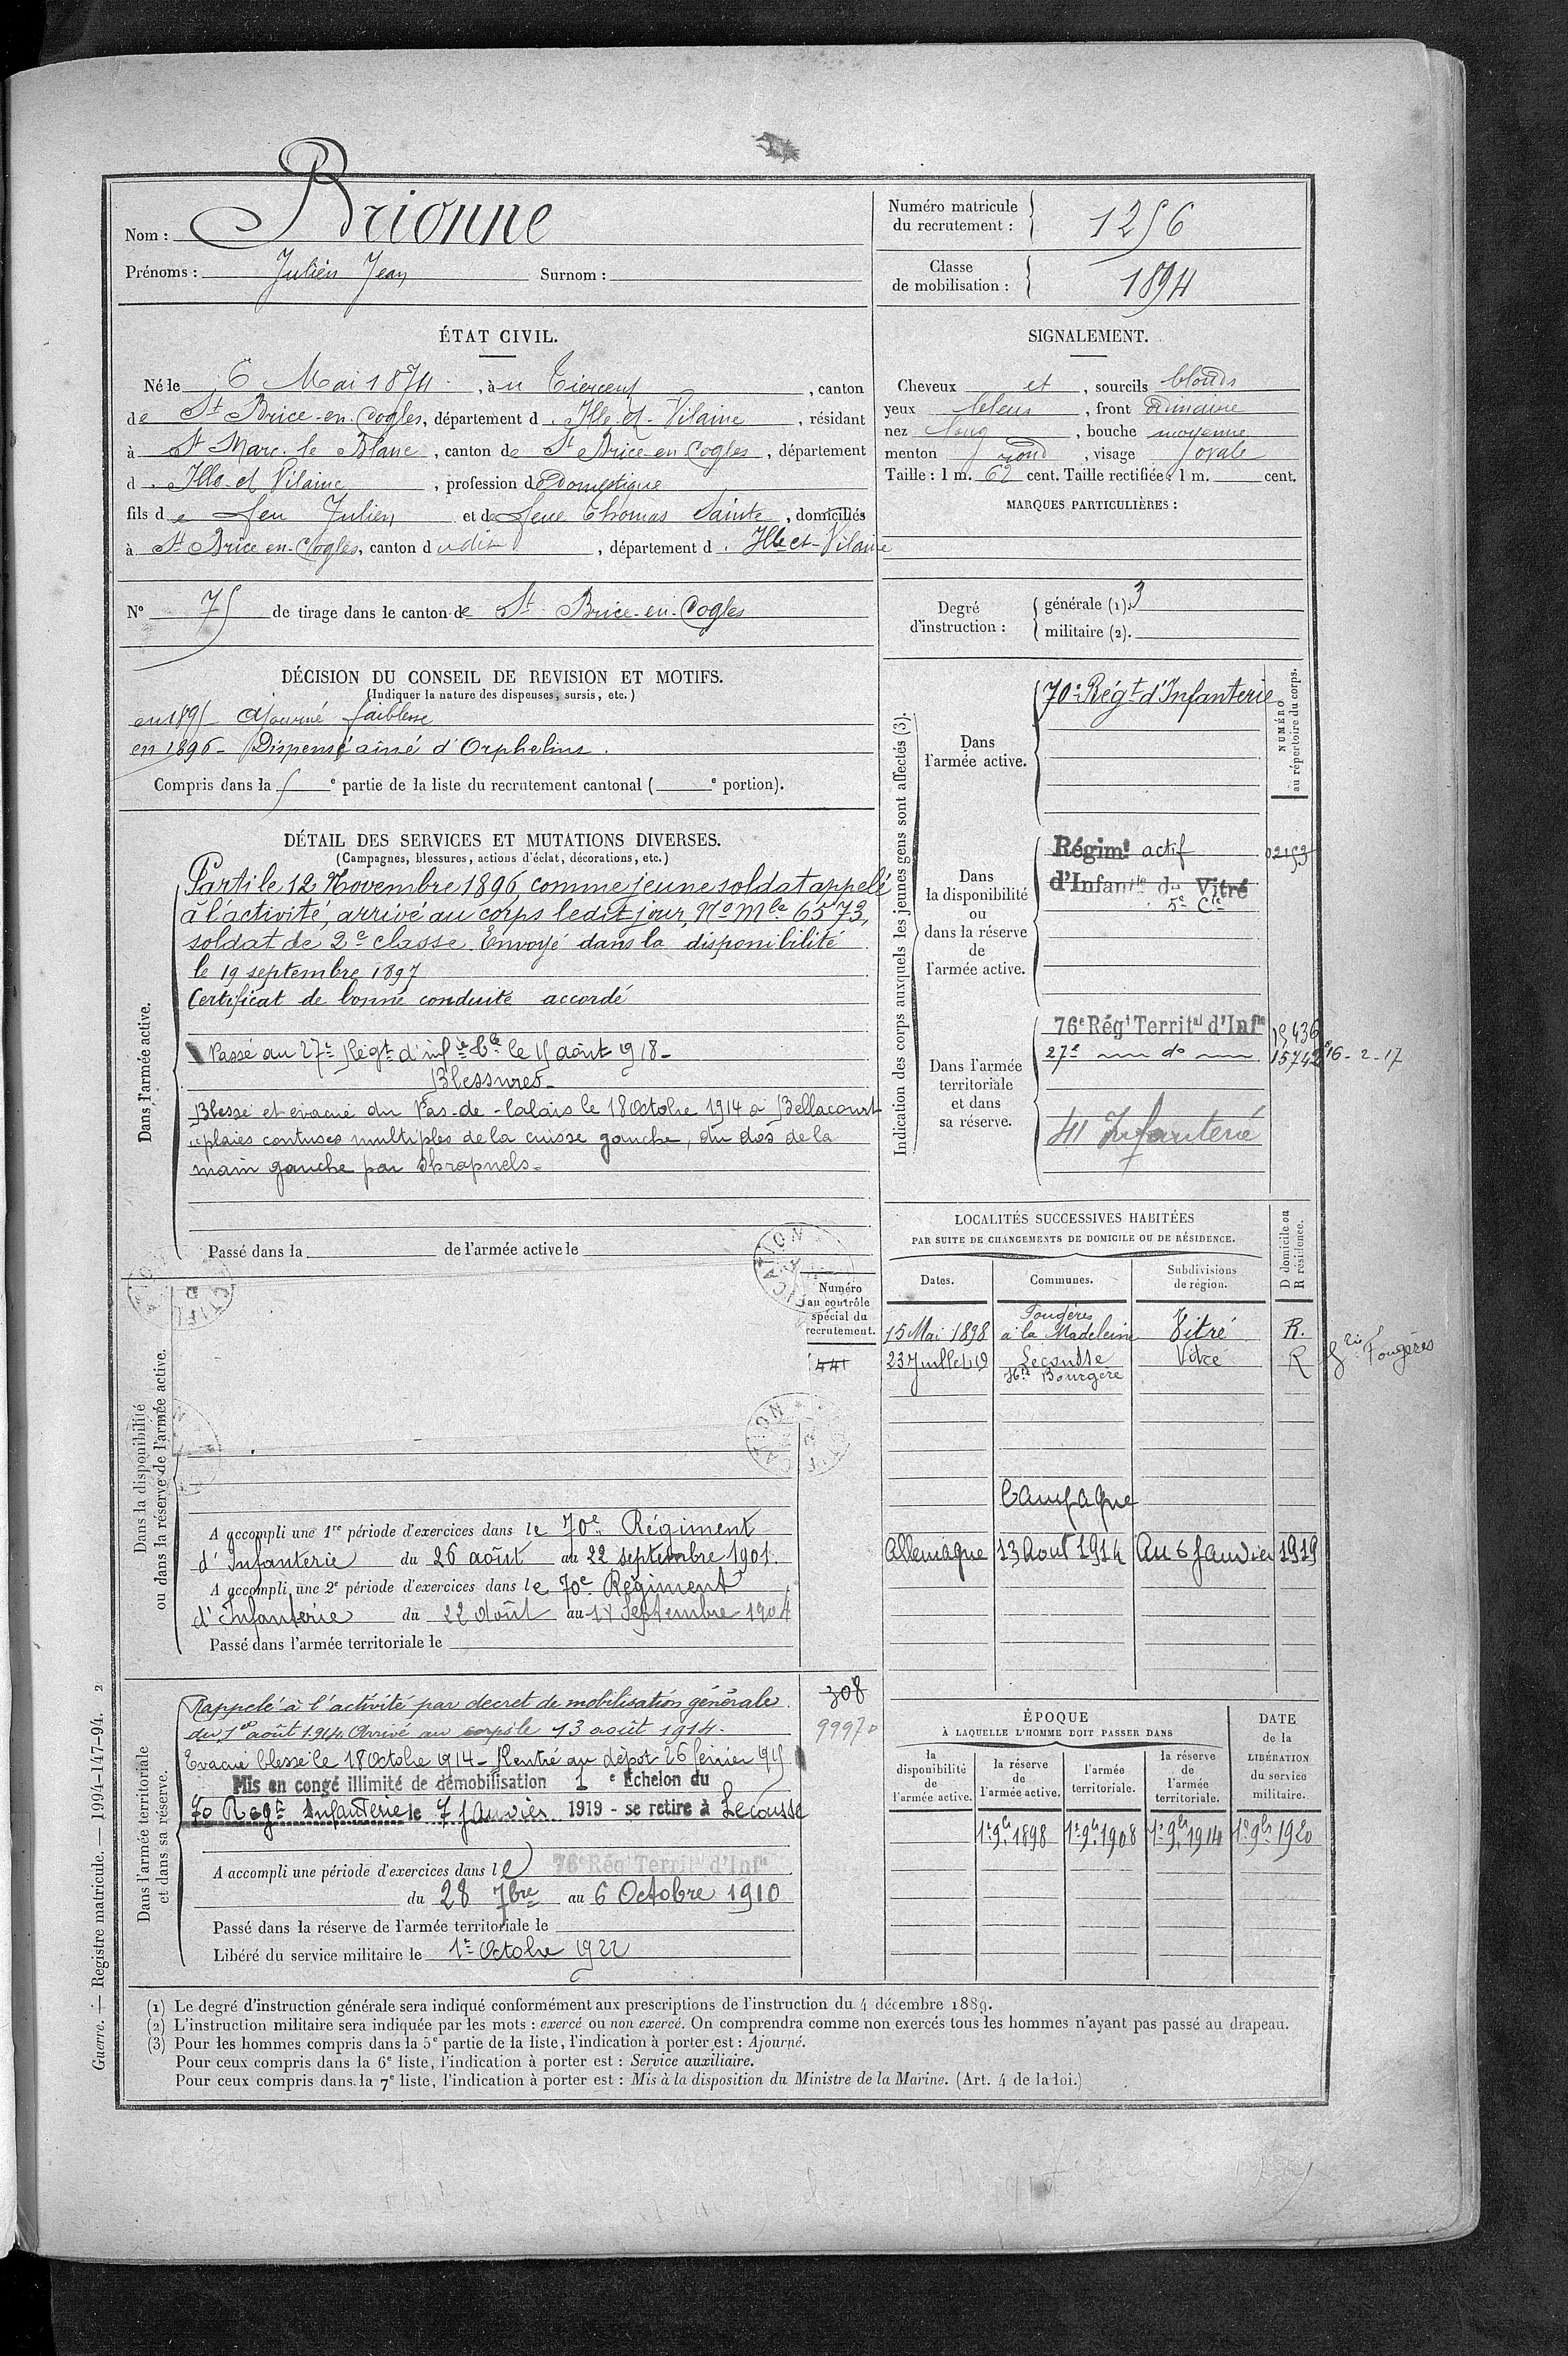 Nom : Brionne
Prénoms : Julien Jean Surnom :
Numéro matricule du recrutement : 1256
Classe de mobilisation : 1894
ÉTAT CIVIL.
Né le 6 Mai 1874, à u Tiercent, canton
de St Brice-en-Cogles, département d. Ille-et-Vilaine, résidant
à St Marc-le-Blanc, canton de St Brice-en-Cogles, département
d. Ille-et-Vilaine, profession de Domestique
fils de feu Julien et de feue Thomas Sainte, domiciliés
à St Brice-en-Cogles, canton dudit, département d. Ille-et-Vilaine
N° 75 de tirage dans le canton de St Brice-en-Cogles
SIGNALEMENT.
Cheveux et, sourcils blonds
yeux bleus, front ordinaire
nez long, bouche moyenne
menton rond, visage ovale
Taille : 1 m. 62 cent. Taille rectifiée : 1 m. cent.
MARQUES PARTICULIÈRES :
Degré d'instruction : générale (1). 3
militaire (2).
DÉCISION DU CONSEIL DE REVISION ET MOTIFS.
(Indiquer la nature des dispenses, sursis, etc.)
en 1895 - Ajourné faiblesse
en 1896 - Dispensé ainé d'Orphelins.
Compris dans la 5e partie de la liste du recrutement cantonal ( e portion).
DÉTAIL DES SERVICES ET MUTATIONS DIVERSES.
(Campagnes, blessures, actions d'éclat, décorations, etc.)
Dans l'armée active.
Parti le 12 Novembre 1896, comme jeune soldat appelé
à l'activité, arrivé au corps ledit jour, No Mle 6573,
soldat de 2e classe. Envoyé dans la disponibilité
le 19 septembre 1897
Certificat de bonne conduite accordé
Passé au 27e Régt d'infie tle le 15 août 1918 -
Blessures -
Blessé et evacué du Pas-de-Calais le 18 Octobre 1914 à Bellacourt
"plaies contuses multiples de la cuisse gauche, du dos de la
main gauche par Shrapnels -
Passé dans la de l'armée active le
Indication des corps auxquels les jeunes gens sont affectés (3).
NUMÉRO au répertoire du corps.
Dans l'armée active.
70e Régt d'Infanterie
Dans la disponibilité ou dans la réserve de l'armée active.
Régimt actif 02153
d'Infantie de Vitré
5e Cie
Dans l'armée territoriale et dans sa réserve.
76e Régt Territal d'Infie 15436
27e do 15742 16-2-17
41 Infanterie
LOCALITÉS SUCCESSIVES HABITÉES
PAR SUITE DE CHANGEMENTS DE DOMICILE OU DE RÉSIDENCE.
Dates. Communes. Subdivisions de région. D domicile ou R résidence.
15 Mai 1898 Fougères à la Madeleine Vitré R.
23 Juillet 19 Lecousse Hte Bourgère Vitré R Fougères
Campagne
Allemagne 13 Aout 1914 Au 6 Janvier 1919
Numéro au contrôle spécial du recrutement.
441
Dans la disponibilité ou dans la réserve de l'armée active.
A accompli une 1re période d'exercices dans le 70e Régiment
d'Infanterie du 26 août au 22 septembre 1901.
A accompli une 2e période d'exercices dans le 70e Régiment
d'Infanterie du 22 Août au Septembre 1904
Passé dans l'armée territoriale le
Dans l'armée territoriale et dans sa réserve.
308
9997
Rappelé à l'activité par decret de mobilisation générale
du 1er août 1914. Arrivé au corps le 13 août 1914.
Evacué blessé le 18 Octobre 1914 - Rentré au dépot 26 février 1915
Mis en congé illimité de démobilisation 1e Échelon du
70 Regt Infanterie le 7 Janvier 1919 - se retire à Lecousse
A accompli une période d'exercices dans le 76e Régt Territal d'Infie
du 28 7bre au 6 Octobre 1910
Passé dans la réserve de l'armée territoriale le
Libéré du service militaire le 1er Octobre 1922
ÉPOQUE
À LAQUELLE L'HOMME DOIT PASSER DANS
la disponibilité de l'armée active. la réserve de l'armée active. l'armée territoriale. la réserve de l'armée territoriale. DATE de la LIBÉRATION du service militaire.
1er 9bre 1898 1er 9bre 1908 1er 9bre 1914 1er 9bre 1920
(1) Le degré d'instruction générale sera indiqué conformément aux prescriptions de l'instruction du 4 décembre 1889.
(2) L'instruction militaire sera indiquée par les mots : exercé ou non exercé. On comprendra comme non exercés tous les hommes n'ayant pas passé au drapeau.
(3) Pour les hommes compris dans la 5e partie de la liste, l'indication à porter est : Ajourné.
Pour ceux compris dans la 6e liste, l'indication à porter est : Service auxiliaire.
Pour ceux compris dans la 7e liste, l'indication à porter est : Mis à la disposition du Ministre de la Marine. (Art. 4 de la loi.)
Guerre. — Registre matricule. — 1994-147-94. 2